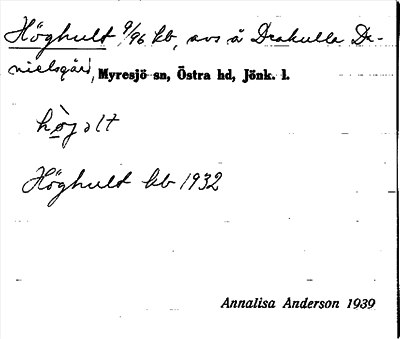 Höghult 9/96 kb, avs å Drakulla Da-
nielsgård, Myresjö sn, Östra hd, Jönk. l.
hö̀jɔlt
Höghult kb 1932
Annalisa Anderson 1939